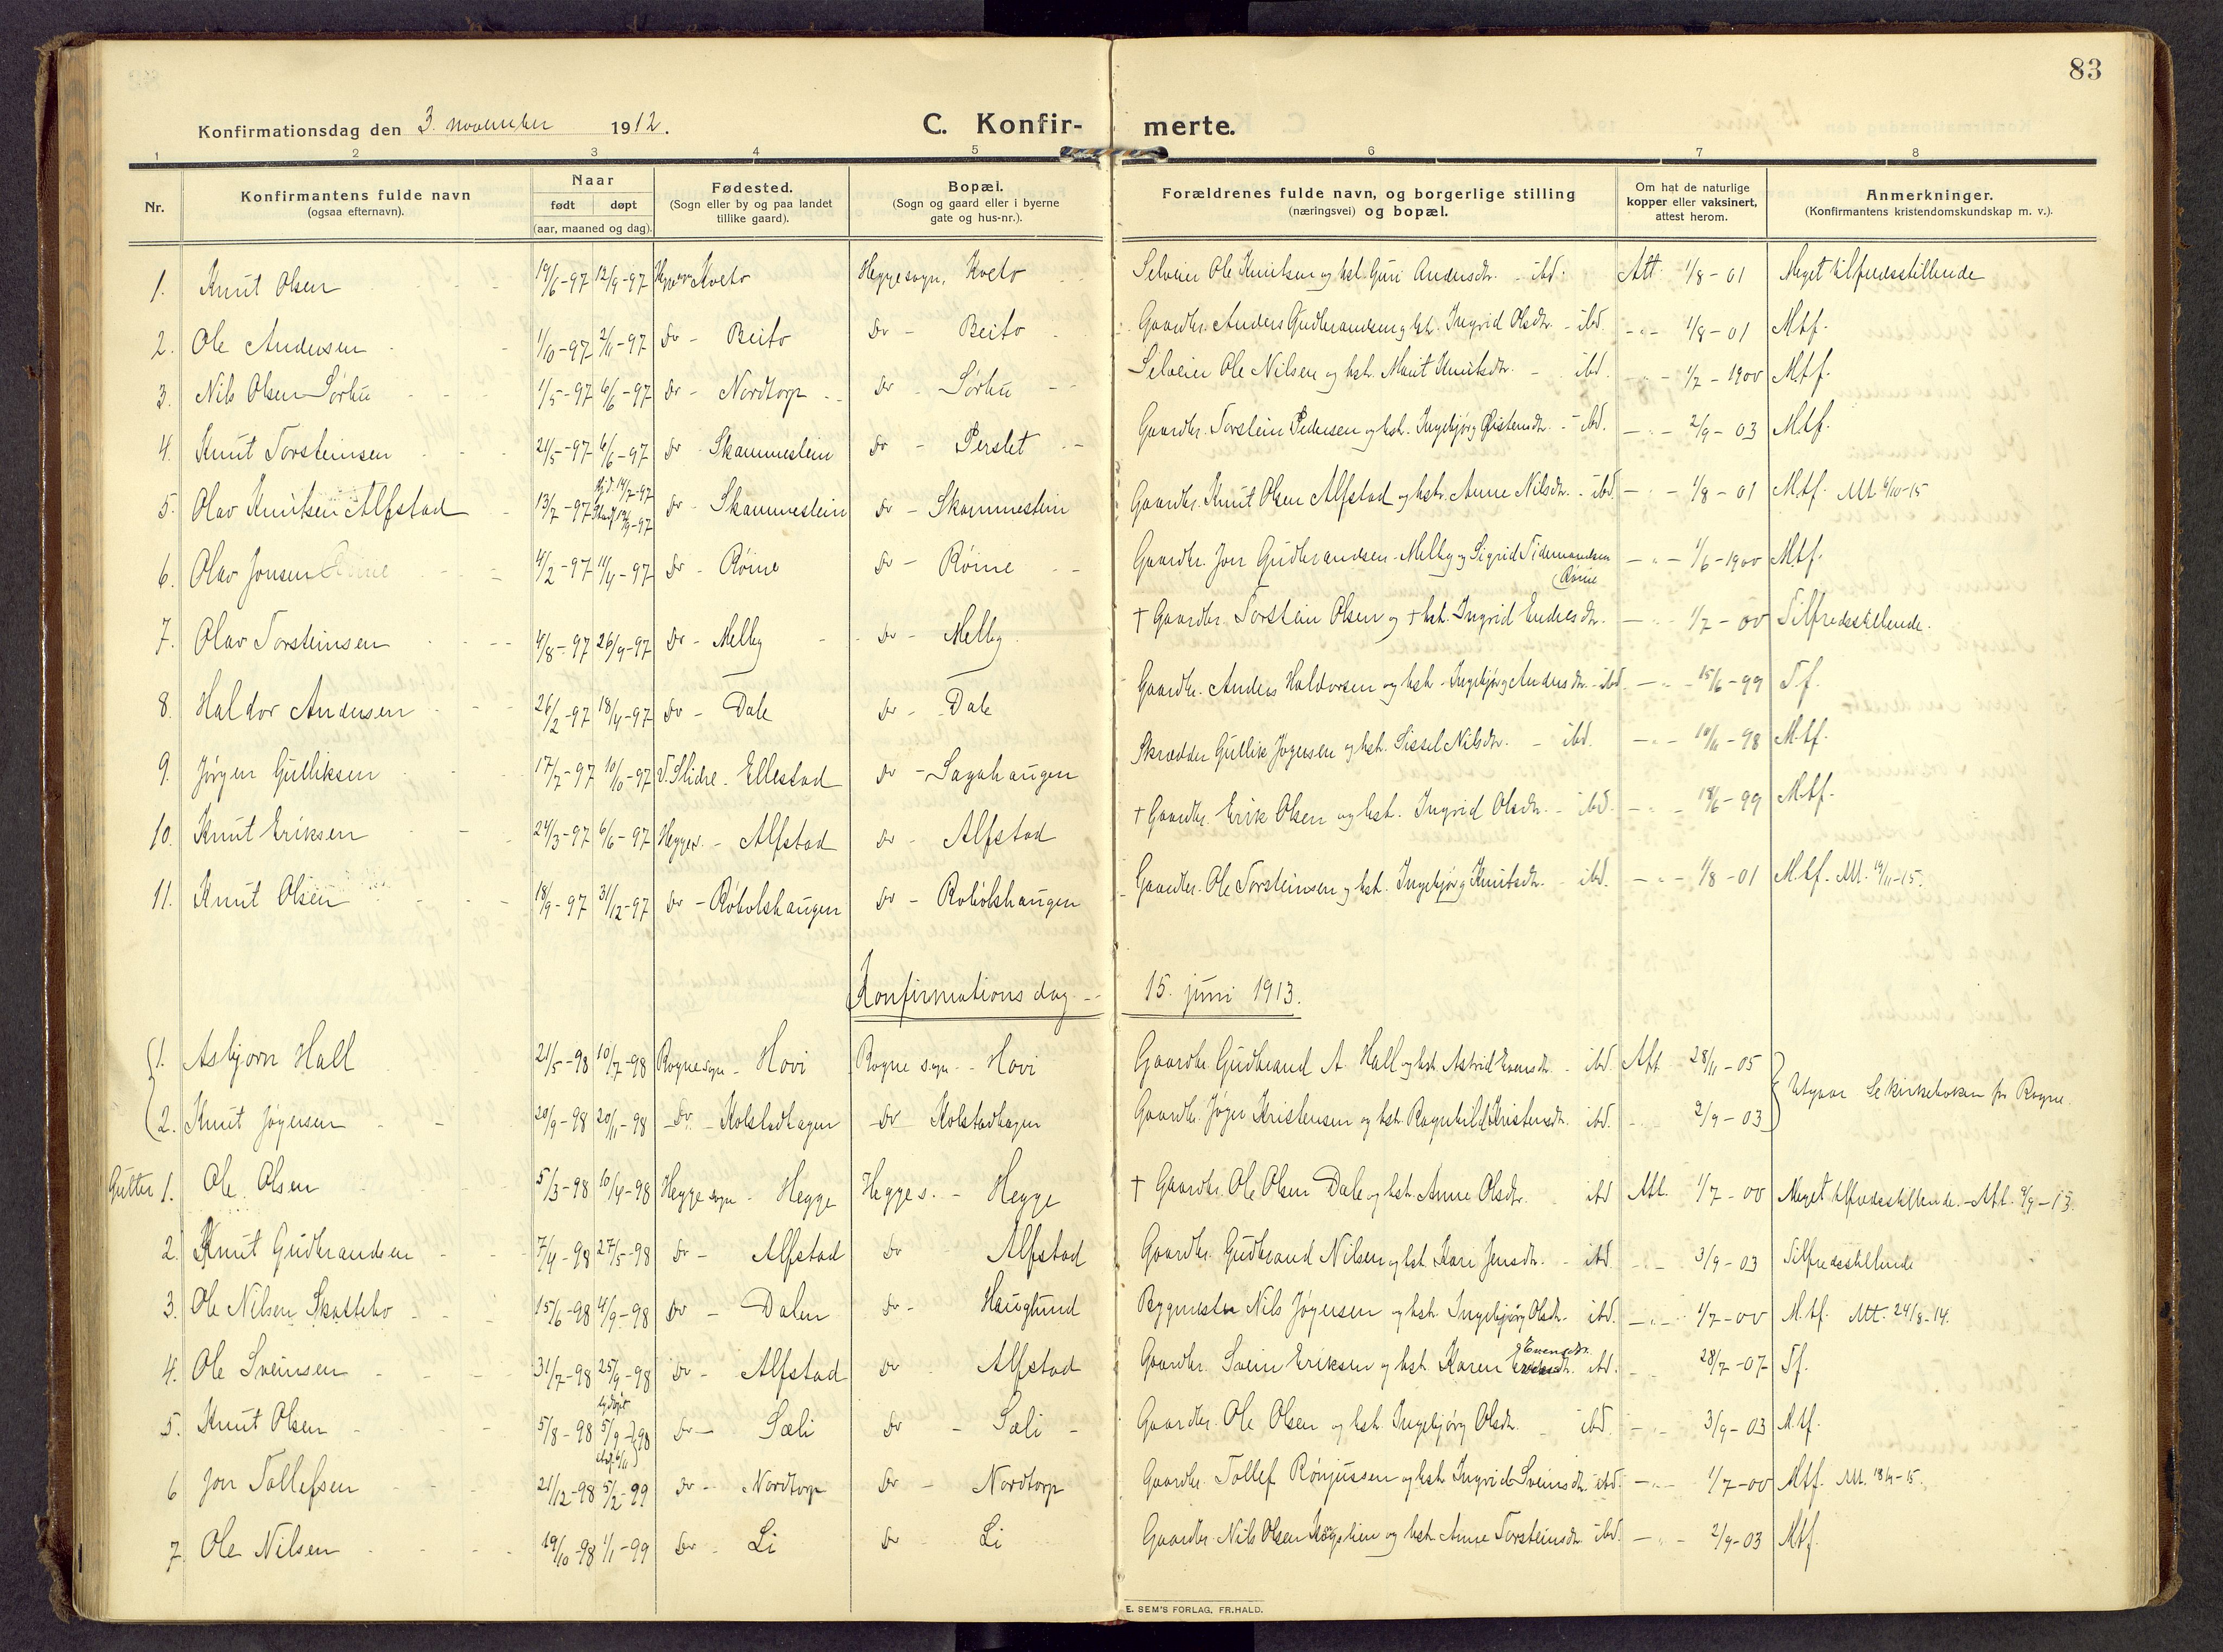 83
Konfirmationsdag den 3. november 1912.
C. Konfirmerte.
1 2 3 4 5 6 7 8
Nr. Konfirmantens fulde navn (ogsaa efternavn). Naar født døpt (aar, maaned og dag). Fødested. (Sogn eller by og paa landet tillike gaard). Bopæl. (Sogn og gaard eller i byerne gate og hus-nr.). Forældrenes fulde navn, og borgerlige stilling (næringsvei) og bopæl. Om hat de naturlige kopper eller vaksinert, attest herom. Anmerkninger. (Konfirmantens kristendomskundskap m. v.).
1. Knut Olsen 19/6-97 12/9-97 Kveto Heggesogn, Kveto Selveier Ole Knutsen og hst. Guri Andersdtr. - ibd. Att. 1/8-01 Meget tilfredsstillende
2. Ole Andersen 1/10-97 2/11-97 Do - Beito Do - Beito Gaardbr. Anders Gudbrandsen og hst. Ingrid Olsdtr. - ibd. - " - 1/8-01 Mtf.
3. Nils Olsen Sørhu 1/5-97 6/6-97 Do - Nordtorp Do - Sørhu Selveier Ole Nilsen og hst. Marit Knutsdtr. - ibd. - " - 1/7-1900 Mtf.
4. Knut Torsteinsen 21/5-97 6/6-97 Do - Skammestein Do - Perslet Gaardbr. Torstein Pedersen og hst. Ingebjørg Østensdtr. - ibd. - " - 2/9-03 Mtf.
5. Olav Knutsen Alfstad 13/7-97 14/7-97 12/9-97 Do - Skammestein Do - Skammestein Gaardbr. Knut Olsen Alfstad og hst. Anne Nilsdtr. - ibd. - " - 1/8-01 Mtf. Att. 6/10-15
6. Olav Jonsen Røine 4/2-97 11/4-97 Do - Røine Do - Røine Gaardbr. Jon Gudbrandsen Melby og Sigrid Tidemandsen Røine - " - 1/6-1900 Mtf.
7. Olav Torsteinsen 4/8-97 26/9-97 Do - Melby Do - Melby † Gaardbr. Torstein Olsen og † hst. Ingrid Endresdtr. - " - 1/7-00 Tilfredsstillende.
8. Haldor Andersen 26/2-97 18/4-97 Do - Dale Do - Dale Gaardbr. Anders Haldorsen og hst. Ingebjørg Andersdtr. - ibd. - " - 15/6-99 Tf.
9. Jørgen Gulliksen 17/7-97 10/10-97 V. Slidre - Ellestad Do - Sagahaugen Skrædder Gullik Jøgensen og hst. Sissel Nilsdtr. - ibd. - " - 10/11-98 Mtf.
10. Knut Eriksen 24/3-97 6/6-97 Hegges. - Alfstad Do - Alfstad † Gaardbr. Erik Olsen og hst. Ingrid Olsdtr. - ibd. - " - 18/6-99 Mtf.
11. Knut Olsen 18/9-97 31/12-97 Do - Róbólshaugen Do - Robólshaugen Gaardbr. Ole Torsteinsen og hst. Ingebjørg Knutsdtr. - ibd. - " - 1/8-01 Mtf. Att. 19/11-15.
Konfirmationsdag - 15. juni 1913.
1. Asbjørn Hall 21/5-98 10/7-98 Rogne sogn - Hovi Rogne sogn - Hovi Gaardbr. Gudbrand A. Hall og hst. Astrid Evensdtr. - ibd. Att. 28/11-05
2. Knut Jøgensen 20/9-98 20/11-98 Do - Kolstadhagen Do Kolstadhagen Gaardbr. Jøgen Kristensen og hst. Ragnhild Kristensdtr. ibd. - 2/9-03 Utgaar Se kirkeboken for Rogne.
Gutter 1. Ole Olsen 5/3-98 10/4-98 Hegge sogn - Hegge Hegge s. - Hegge † Gaardbr. Ole Olsen Dale og hst. Anne Olsdtr. ibd Att. 1/7-00 Meget tilfredsstillende. Att. 9/9-13.
2. Knut Gudbrandsen 7/4-98 27/5-98 Do - Alfstad Do - Alfstad Gaardbr. Gudbrand Nilsen og hst. Kari Jensdtr. - ibd. - " - 3/9-03 Tilfredsstillende
3. Ole Nilsen Skattebo 15/6-98 4/9-98 Do - Dalen Do - Hauglund Bygmester Nils Jøgensen og hst. Ingebjørg Olsdtr. ibd. - " - 1/7-00 Mtf. Att. 24/8-14.
4. Ole Sveinsen 31/7-98 25/9-98 Do - Alfstad Do Alfstad Gaardbr. Svein Eriksen og hst. Karen Evensdtr. ibd. - 28/7-07 Tf.
5. Knut Olsen 5/8-98 5/9-98 Do - Sæli Do - Sæli Gaardbr. Ole Olsen og hst. Ingebjørg Olsdtr. ibd. - " - 3/9-03 Mtf.
6 Jon Tollefsen 21/12-98 5/2-99 Do - Nordtorp Do - Nordtorp Gaardbr. Tollef Rønjussen og hst. Ingrid Sveinsdtr. ibd. - " - 1/7-00 Mtf. Att. 18/4-15.
7. Ole Nilsen 19/10-98 1/1-99 Do - Li Do Li Gaardbr. Nils Olsen Høgelien og hst. Anne Torsteinsdtr. ibd. - " - 2/9-03 Mtf.
E. SEM'S FORLAG, FR.HALD.